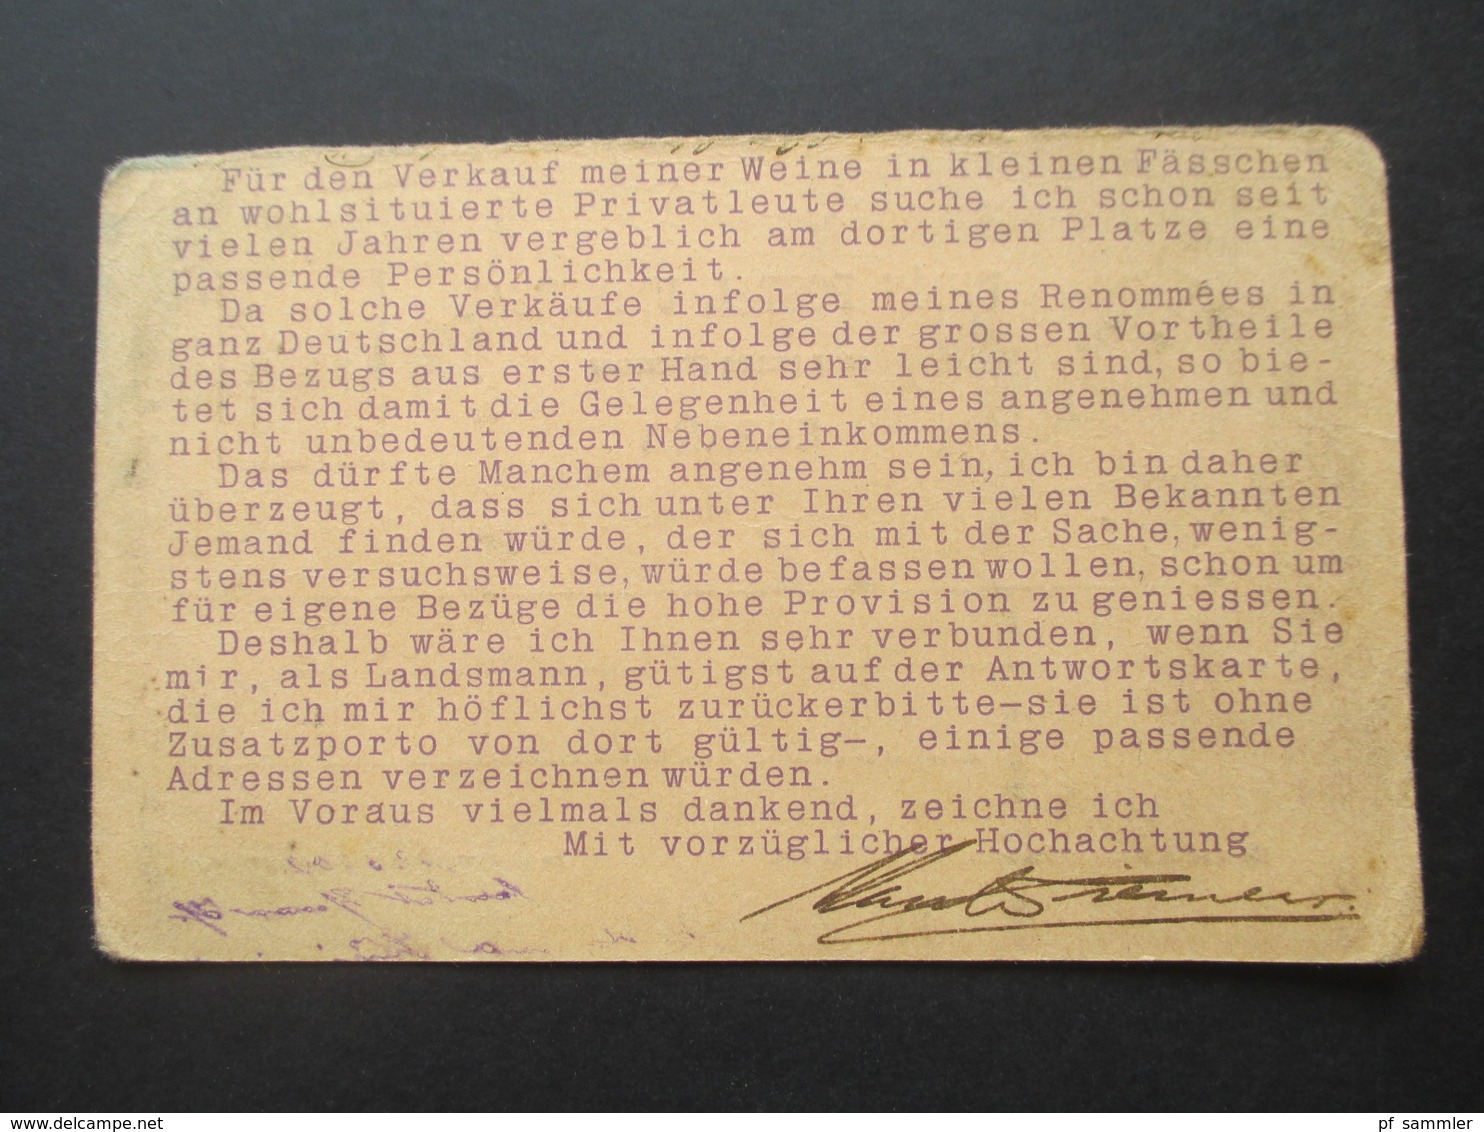 Für den Verkauf meiner Weine in kleinen Fässchen
an wohlsituierte Privatleute suche ich schon seit
vielen Jahren vergeblich am dortigen Platze eine
passende Persönlichkeit.
Da solche Verkäufe infolge meines Renommées in
ganz Deutschland und infolge der grossen Vortheile
des Bezugs aus erster Hand sehr leicht sind, so bie-
tet sich damit die Gelegenheit eines angenehmen und
nicht unbedeutenden Nebeneinkommens.
Das dürfte Manchem angenehm sein, ich bin daher
überzeugt, dass sich unter Ihren vielen Bekannten
Jemand finden würde, der sich mit der Sache, wenig-
stens versuchsweise, würde befassen wollen, schon um
für eigene Bezüge die hohe Provision zu geniessen.
Deshalb wäre ich Ihnen sehr verbunden, wenn Sie
mir, als Landsmann, gütigst auf der Antwortskarte,
die ich mir höflichst zurückerbitte-sie ist ohne
Zusatzporto von dort gültig-, einige passende
Adressen verzeichnen würden.
Im Voraus vielmals dankend, zeichne ich
Mit vorzüglicher Hochachtung
delcampe.net
pf_sammler